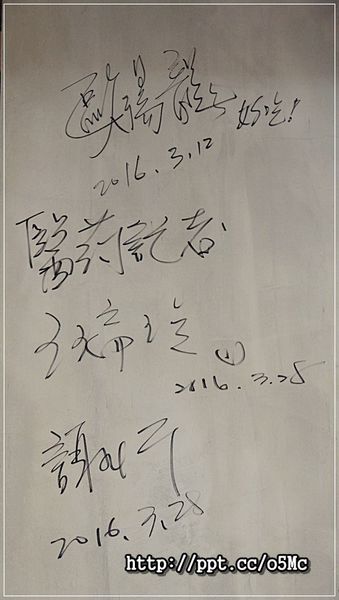 歐陽龍 好吃!
2016.3.12
醫葯記者
2016.3.25
謝
2016.3.28
http://ppt.cc/o5Mc